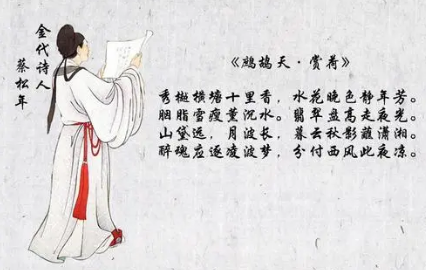 金代诗人
蔡松年
《鹧鸪天·赏荷》
秀樾横塘十里香，水花晚色静年芳。
胭脂雪瘦薰沉水，翡翠盘高走夜光。
山黛远，月波长，暮云秋影蘸潇湘。
醉魂应逐凌波梦，分付西风此夜凉。